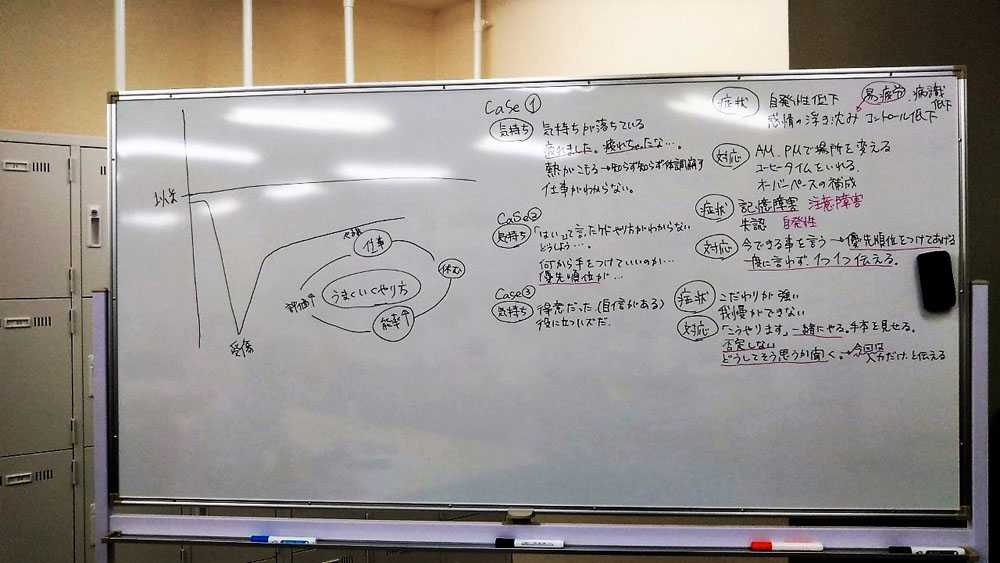 以前
受傷
仕事
休む
能率↑
評価↑
うまくいくやり方
Case①
気持ち 気持ちが落ちている
疲れました。疲れちゃったな…。
熱がこもる→知らず知らず体調崩す
仕事がわからない。
症状 自発性低下 易疲労 病識低下
感情の浮き沈み コントロール低下
対応 AM、PMで場所を変える
コーヒータイムをいれる。
オーバーペースの補成
Case②
気持ち 「はい」って言ったけどやり方がわからない
どうしよう…。
何から手をつけていいのか…
優先順位が…
症状 記憶障害 注意障害
失認 自発性
対応 今できる事を言う→優先順位をつけてあげる
一度に言わず、1つ1つ伝える。
Case③
気持ち 得意だった(自信がある)
役に立つハズだ。
症状 こだわりが強い
我慢ができない
対応 「こうやります」一緒にやる。手本を見せる。
否定しない
どうしてそう思うか聞く。→今回は入力だけ と伝える